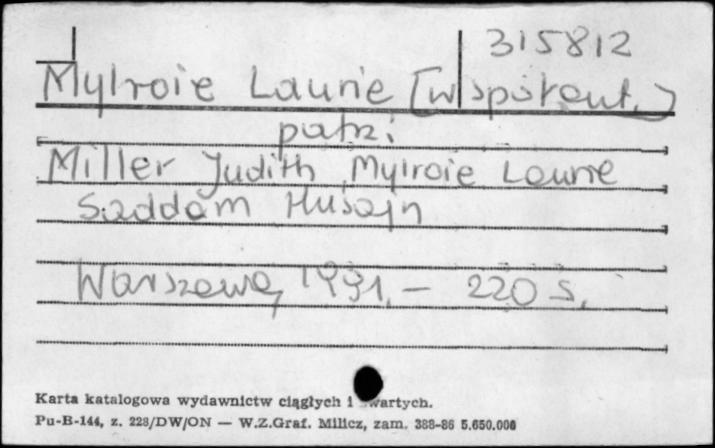 315812
Mylroie Laurie [współaut.)
patrz:
Miller Judith, Mylroie Laurie
Saddam Husajn
Warszawa, 1991. - 220 s.
Karta katalogowa wydawnictw ciągłych i zwartych.
Pu-B-144, z. 228/DW/ON — W.Z.Graf. Milicz, zam. 388-86 5.650.000